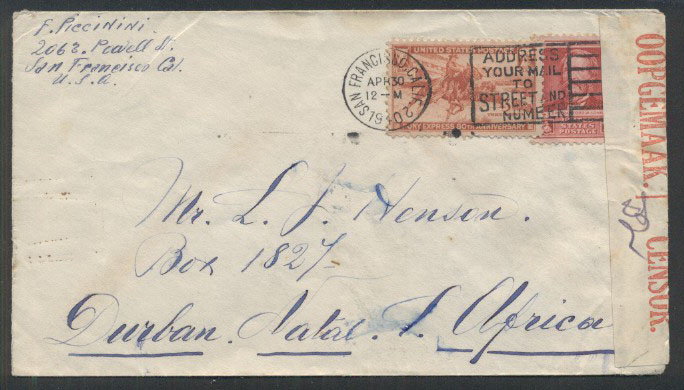 F. Piccinini
2062. Powell St.
San Francisco Cal.
U.S.A.
SAN FRANCISCO, CALIF.
APR 30
12-M
ADDRESS
YOUR MAIL
TO
STREET AND
NUMBER
UNITED STATES POSTAGE
PONY EXPRESS 80TH ANNIVERSARY
POSTAGE
Mr. L. J. Henson.
Box 1827
Durban. Natal. S. Africa
OOPGEMAAK. CENSOR.